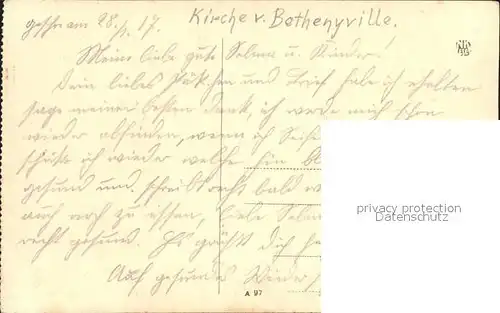 geschr. am 28./1. 17. Kirche v. Bethenyville.
Meine liebe gute Selma u. Kinder!
Dein liebes Päckchen und Brief habe ich erhalten
sage meinen besten Dank, ich werde mich schon
wieder abfinden, wenn ich
ich wieder welche hin
gesund und schreibt recht bald
auch noch zu essen, liebe Selma
recht gesund. Es grüßt Dich
Auf gesundes Wieder
A 97
privacy protection
Datenschutz